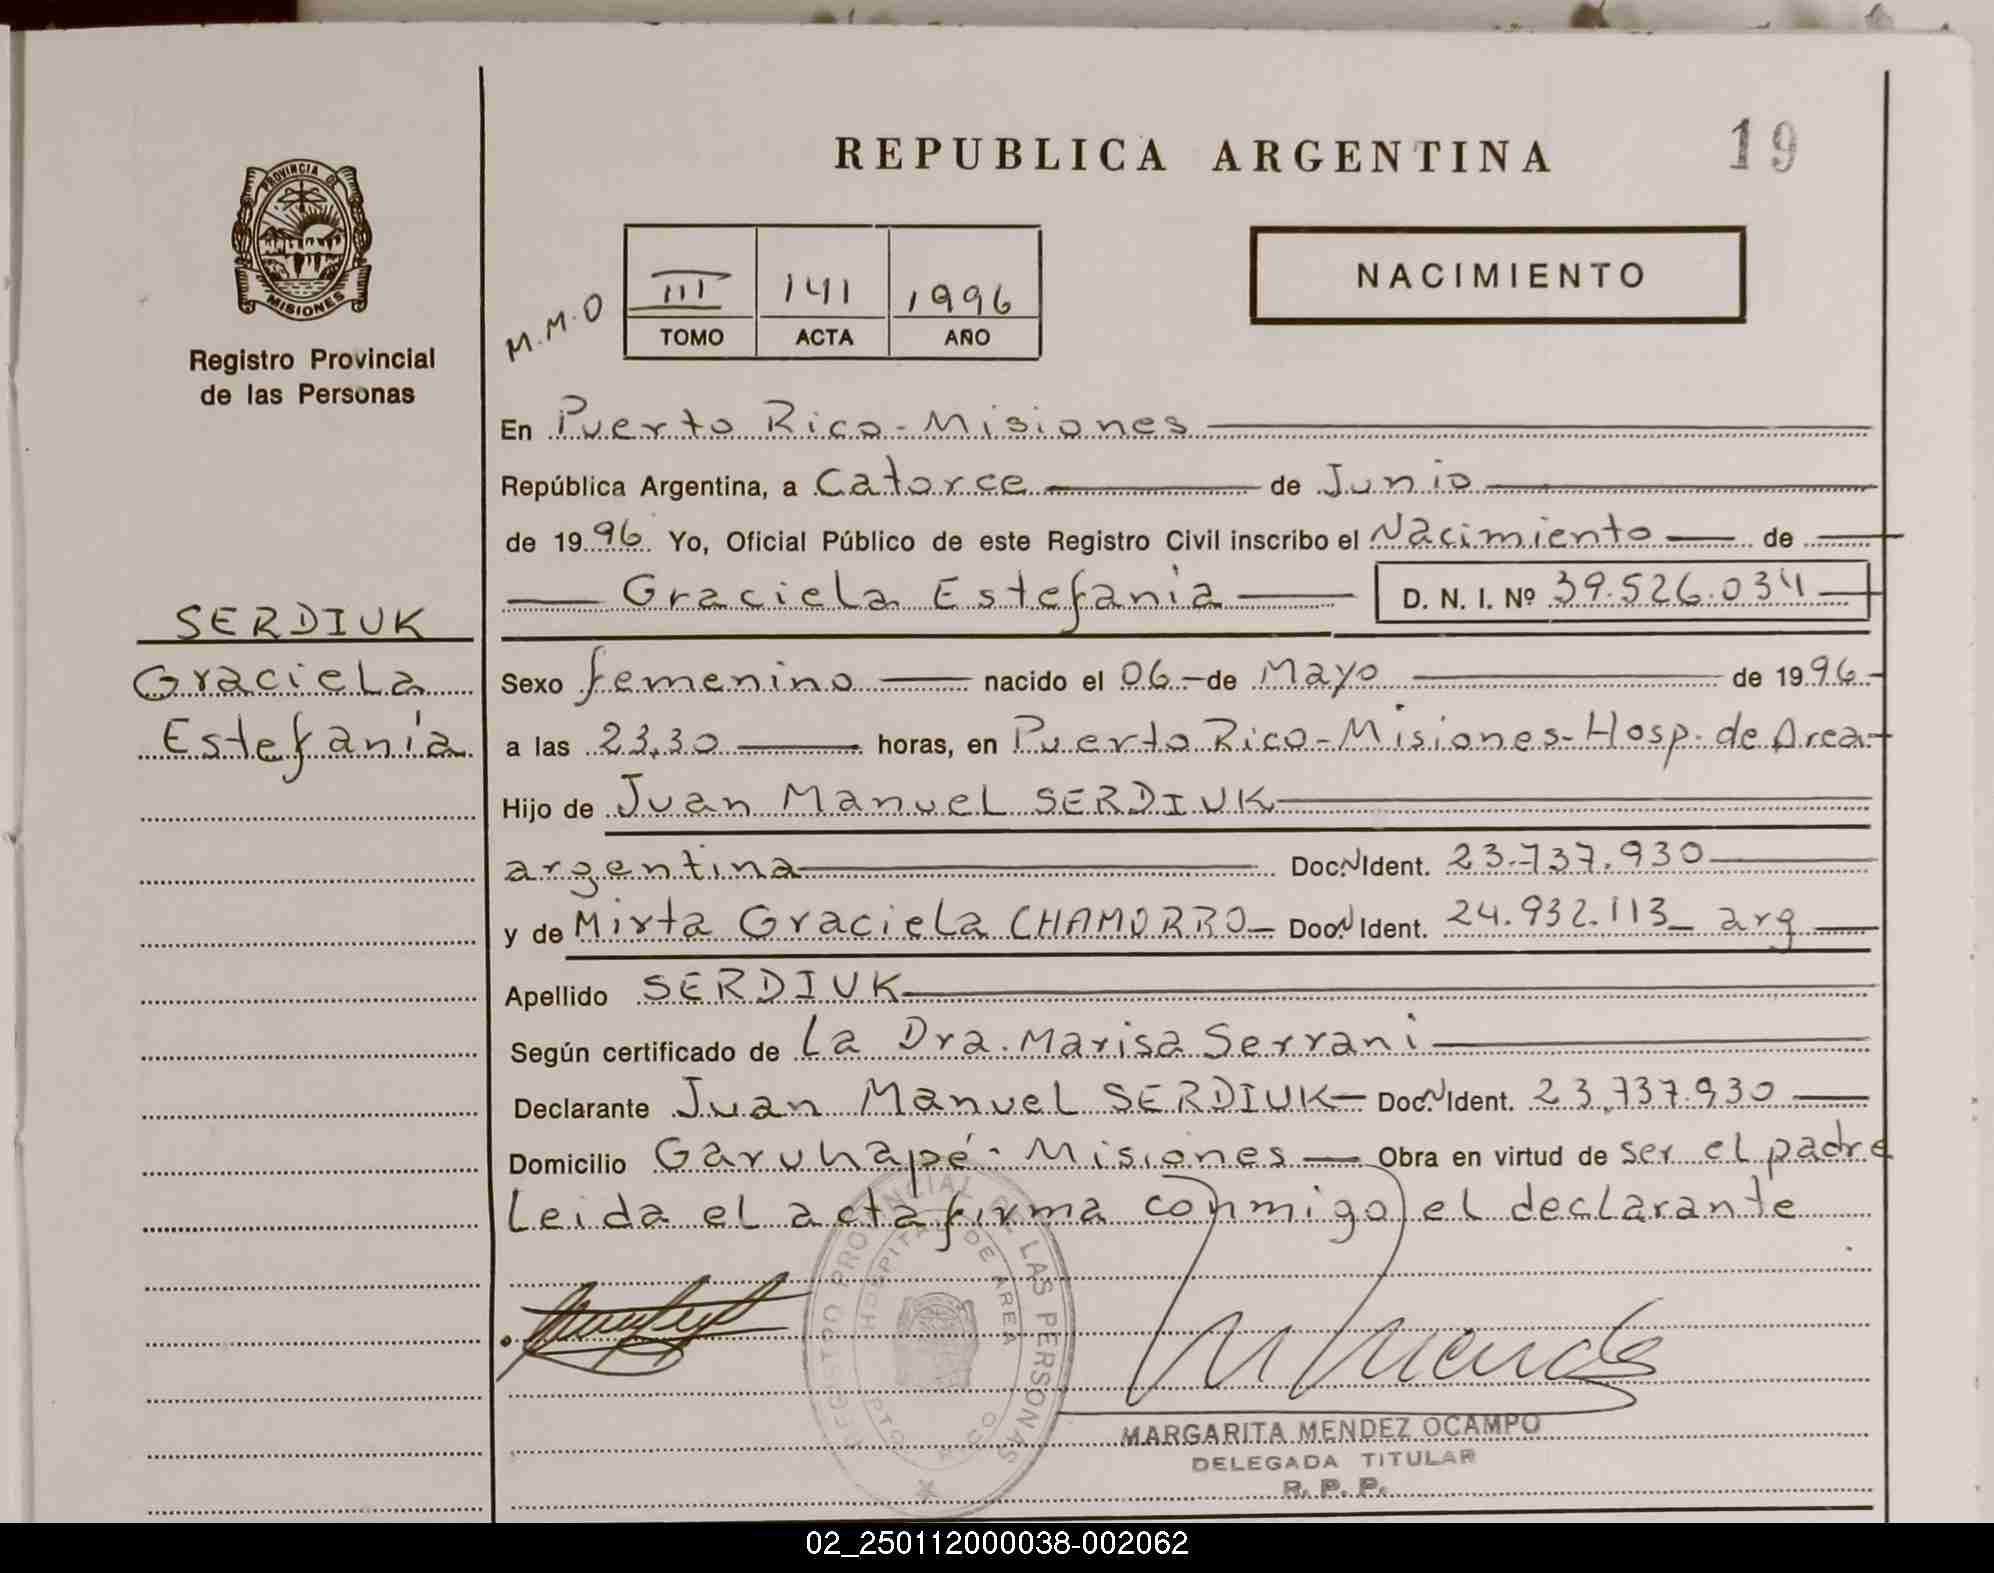 REPUBLICA ARGENTINA
19
PROVINCIA DE
MISIONES
Registro Provincial
de las Personas
M.M.O
III 141 1996
TOMO ACTA AÑO
NACIMIENTO
En Puerto Rico - Misiones
República Argentina, a Catorce de Junio
de 1996 Yo, Oficial Público de este Registro Civil inscribo el Nacimiento de
Graciela Estefanía D. N. I. Nº 39.526.034
SERDIUK
Graciela
Estefanía
Sexo femenino nacido el 06 - de Mayo de 1996
a las 23,30 horas, en Puerto Rico - Misiones - Hosp. de Area
Hijo de Juan Manuel SERDIUK
argentina Doc. Ident. 23.737.930
y de Mirta Graciela CHAMORRO Doc. Ident. 24.932.113 arg
Apellido SERDIUK
Según certificado de La Dra. Marisa Serrani
Declarante Juan Manuel SERDIUK Doc. Ident. 23.737.930
Domicilio Garuhapé - Misiones Obra en virtud de ser el padre
Leida el acta firma conmigo el declarante
REGISTRO PROVINCIAL DE LAS PERSONAS
HOSPITAL DE AREA
PTO. RICO
MARGARITA MENDEZ OCAMPO
DELEGADA TITULAR
R. P. P.
02_250112000038-002062